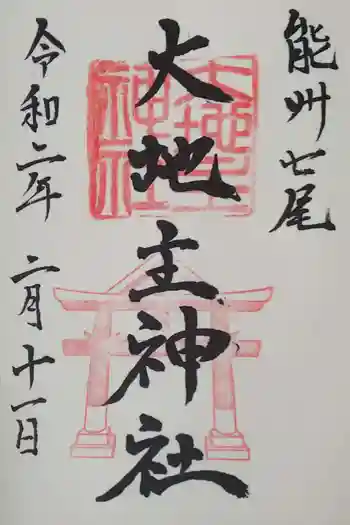 能州七尾
大地主神社
令和二年 二月十一日
大地主神社